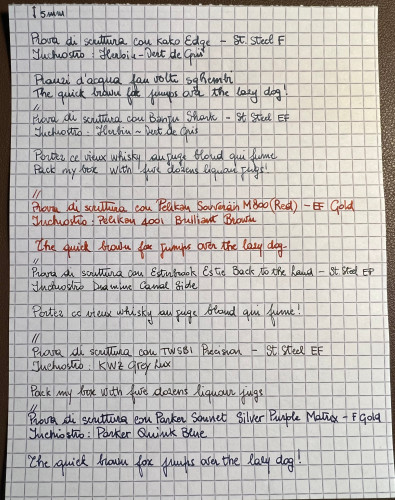 5 mm
Prova di scrittura con Kako Edge - St. Steel F
Inchiostro: Herbin - Vert de Gris
Pranzi d'acqua fan volti sghembi
The quick brown fox jumps over the lazy dog!
//
Prova di scrittura con Benu Shark - St Steel EF
Inchiostro: Herbin - Vert de Gris
Portez ce vieux whisky au juge blond qui fume
Pack my box with five dozens liquour jugs!
//
Prova di scrittura con Pelikan Souverän M800 (Red) - EF Gold
Inchiostro: Pelikan 4001 Brilliant Brown
The quick brown fox jumps over the lazy dog
//
Prova di scrittura con Esterbrook Estie Back to the Land - St Steel EF
Inchiostro Diamine Canal Side
Portez ce vieux whisky au juge blond qui fume!
//
Prova di scrittura con TWSBI Precision - St Steel EF
Inchiostro: KWZ Grey Lux
Pack my box with five dozens liquour jugs
//
Prova di scrittura con Parker Sonnet Silver Purple Matrix - F Gold
Inchiostro: Parker Quink Blue
The quick brown fox jumps over the lazy dog!